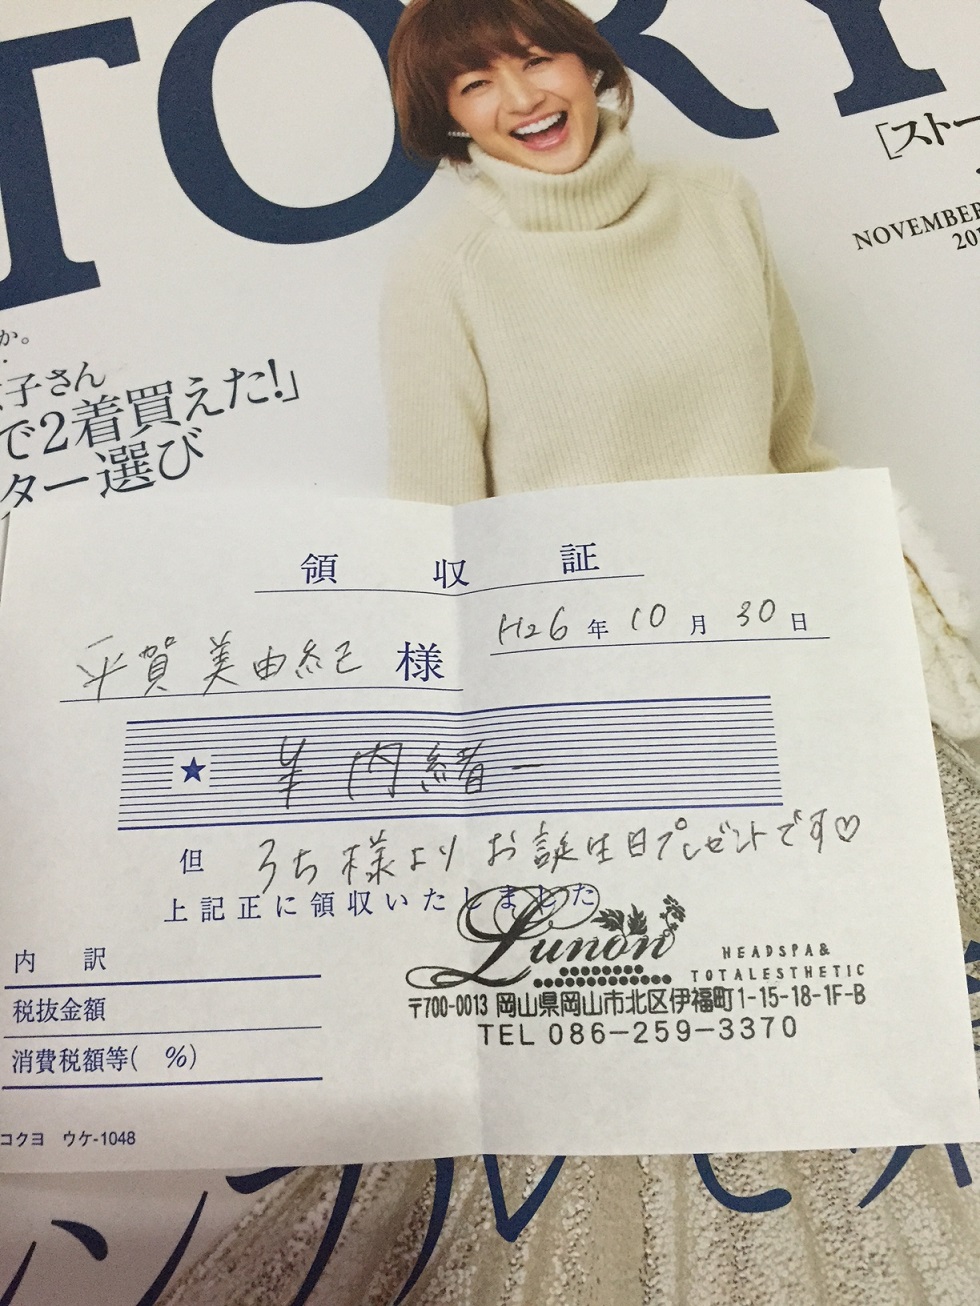 TORY
[ストー
NOVEMBER
201
か。
子さん
で2着買えた!」
ター選び
領収証
平賀 美由紀 様
H26年10月30日
★
但 うち様より お誕生日プレゼントです♡
上記正に領収いたしました
Lunon
HEADSPA&
TOTALESTHETIC
〒700-0013 岡山県岡山市北区伊福町1-15-18-1F-B
TEL 086-259-3370
内 訳
税抜金額
消費税額等( %)
コクヨ ウケ-1048